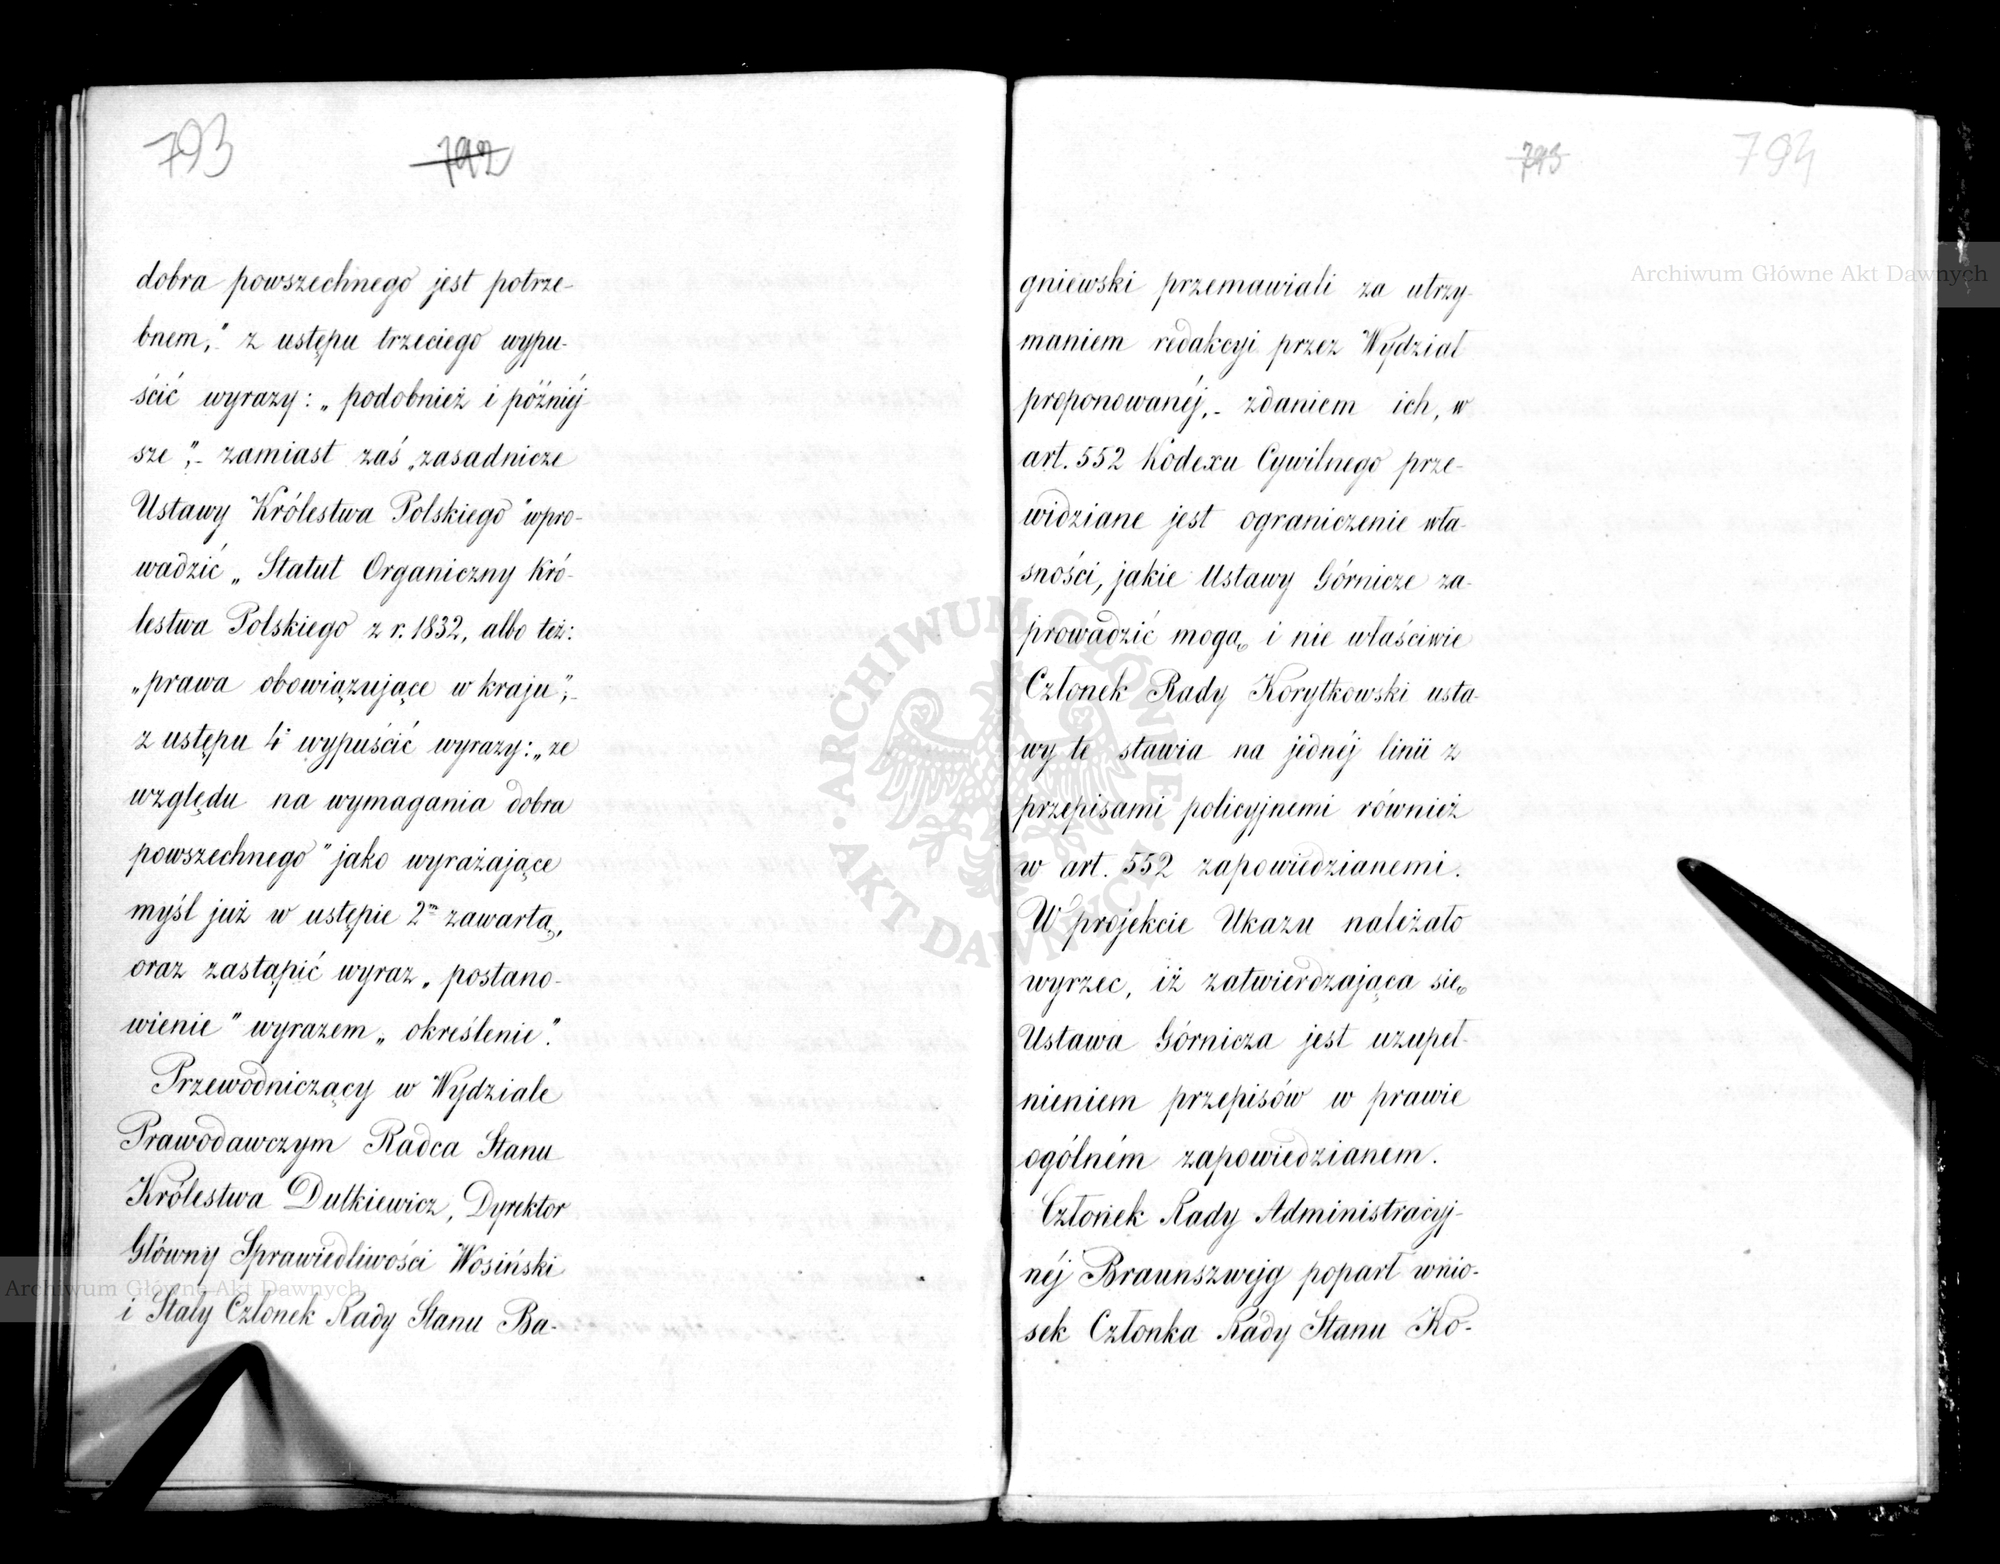 793 792
dobra powszechnego jest potrze-
bnem," z ustępu trzeciego wypu-
ścić wyrazy: „podobnież i późniéj-
sze",- zamiast zaś „zasadnicze
Ustawy Królestwa Polskiego" wpro-
wadzić „Statut Organiczny Kró-
lestwa Polskiego z r. 1832, albo też:
„prawa obowiązujące w kraju",-
z ustępu 4° wypuścić wyrazy: „ze
względu na wymagania dobra
powszechnego" jako wyrażające
myśl już w ustępie 2m zawartą,
oraz zastąpić wyraz „postano-
wienie" wyrazem „określenie".
Przewodniczący w Wydziale
Prawodawczym Radca Stanu
Królestwa Dutkiewicz, Dyrektor
Główny Sprawiedliwości Wosiński
i Stały Członek Rady Stanu Ba-
793 794
gniewski przemawiali za utrzy-
maniem redakcyi przez Wydział
proponowanéj,- zdaniem ich, w
art. 552 Kodexu Cywilnego prze-
widziane jest ograniczenie wła-
sności, jakie Ustawy Górnicze za-
prowadzić mogą i nie właściwie
Członek Rady Korytkowski usta-
wy te stawia na jednéj linii z
przepisami policyjnemi również
w art. 552 zapowiedzianemi.
W projekcie Ukazu należało
wyrzec, iż zatwierdzająca się
Ustawa Górnicza jest uzupeł-
nieniem przepisów w prawie
ogólném zapowiedzianem.
Członek Rady Administracyj-
néj Braunszwejg poparł wnio-
sek Członka Rady Stanu Ko-
Archiwum Główne Akt Dawnych
Archiwum Główne Akt Dawnych
ARCHIWUM GŁÓWNE · AKT DAWNYCH ·